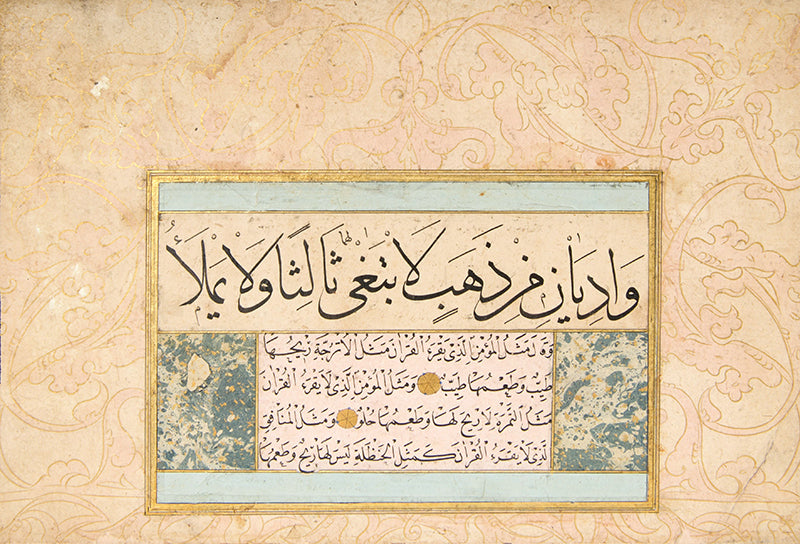 وَادِيَانِ مِنْ ذَهَبٍ لَابْتَغَى ثَالِثًا وَلَا يَمْلَأُ
وقال مَثَلُ المُؤْمِنِ الَّذِى يَقْرَءُ القُرْآنَ مَثَلُ الأُتْرُجَّةِ رِيحُهَا
طَيِّبٌ وَطَعْمُهَا طَيِّبٌ وَمَثَلُ المُؤْمِنِ الَّذِى لَا يَقْرَءُ القُرْآنَ
مَثَلُ التَّمْرَةِ لَا رِيحَ لَهَا وَطَعْمُهَا حُلْوٌ وَمَثَلُ المُنَافِقِ
الَّذِى لَا يَقْرَءُ القُرْآنَ كَمَثَلِ الحَنْظَلَةِ لَيْسَ لَهَا رِيحٌ وَطَعْمُهَا